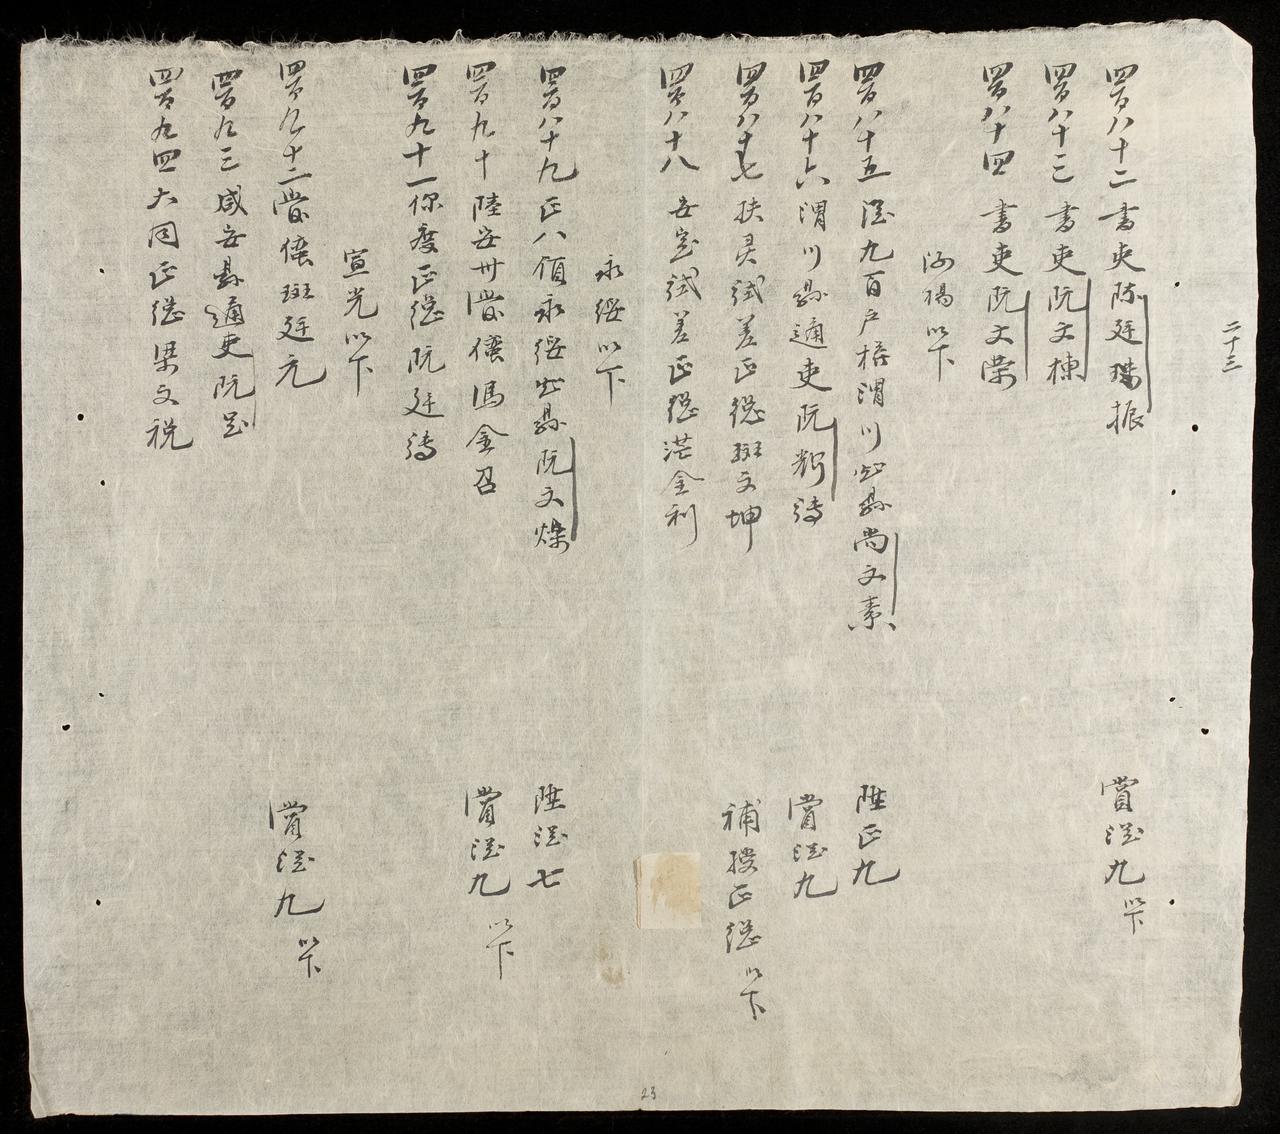 二十三
四百八十二書吏陳廷瑞振 賞從九以下
四百八十三書吏阮文棟
四百八十四書吏阮文榮
河楊以下
四百八十五從九百戶權渭川知縣尚文素 陞正九
四百八十六渭川縣通吏阮輝濤 賞從九
四百八十七扶灵試差正總班文坤 補授正總以下
四百八十八安定試差正總洪金利
永綏以下
四百八十九正八領永綏知縣阮文燦 陞從七
四百九十陸安州幫儴馮金召 賞從九以下
四百九十一你度正總阮廷濤
宣光以下
四百九十二幫儴班廷元 賞從九以下
四百九三咸安縣通吏阮定
四百九四大同正總梁文税
23